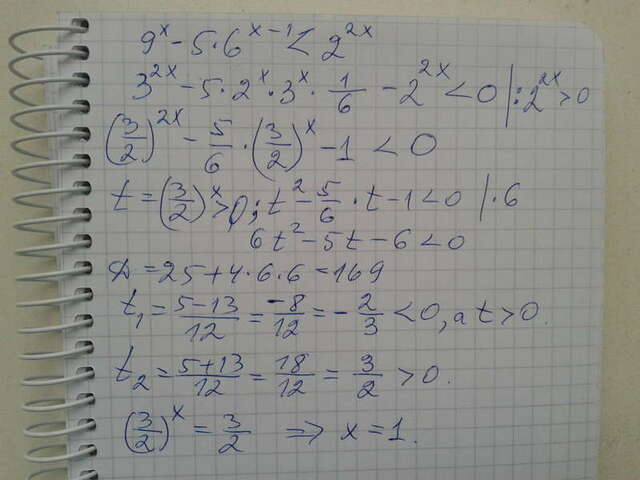 9^x - 5·6^(x-1) < 2^(2x)
3^(2x) - 5·2^x·3^x·1/6 - 2^(2x) < 0 | :2^(2x) > 0
(3/2)^(2x) - 5/6·(3/2)^x - 1 < 0
t = (3/2)^x > 0; t^2 - 5/6·t - 1 < 0 | ·6
6t^2 - 5t - 6 < 0
D = 25 + 4·6·6 = 169
t₁ = (5-13)/12 = -8/12 = -2/3 < 0, а t > 0.
t₂ = (5+13)/12 = 18/12 = 3/2 > 0.
(3/2)^x = 3/2 ⇒ x = 1.